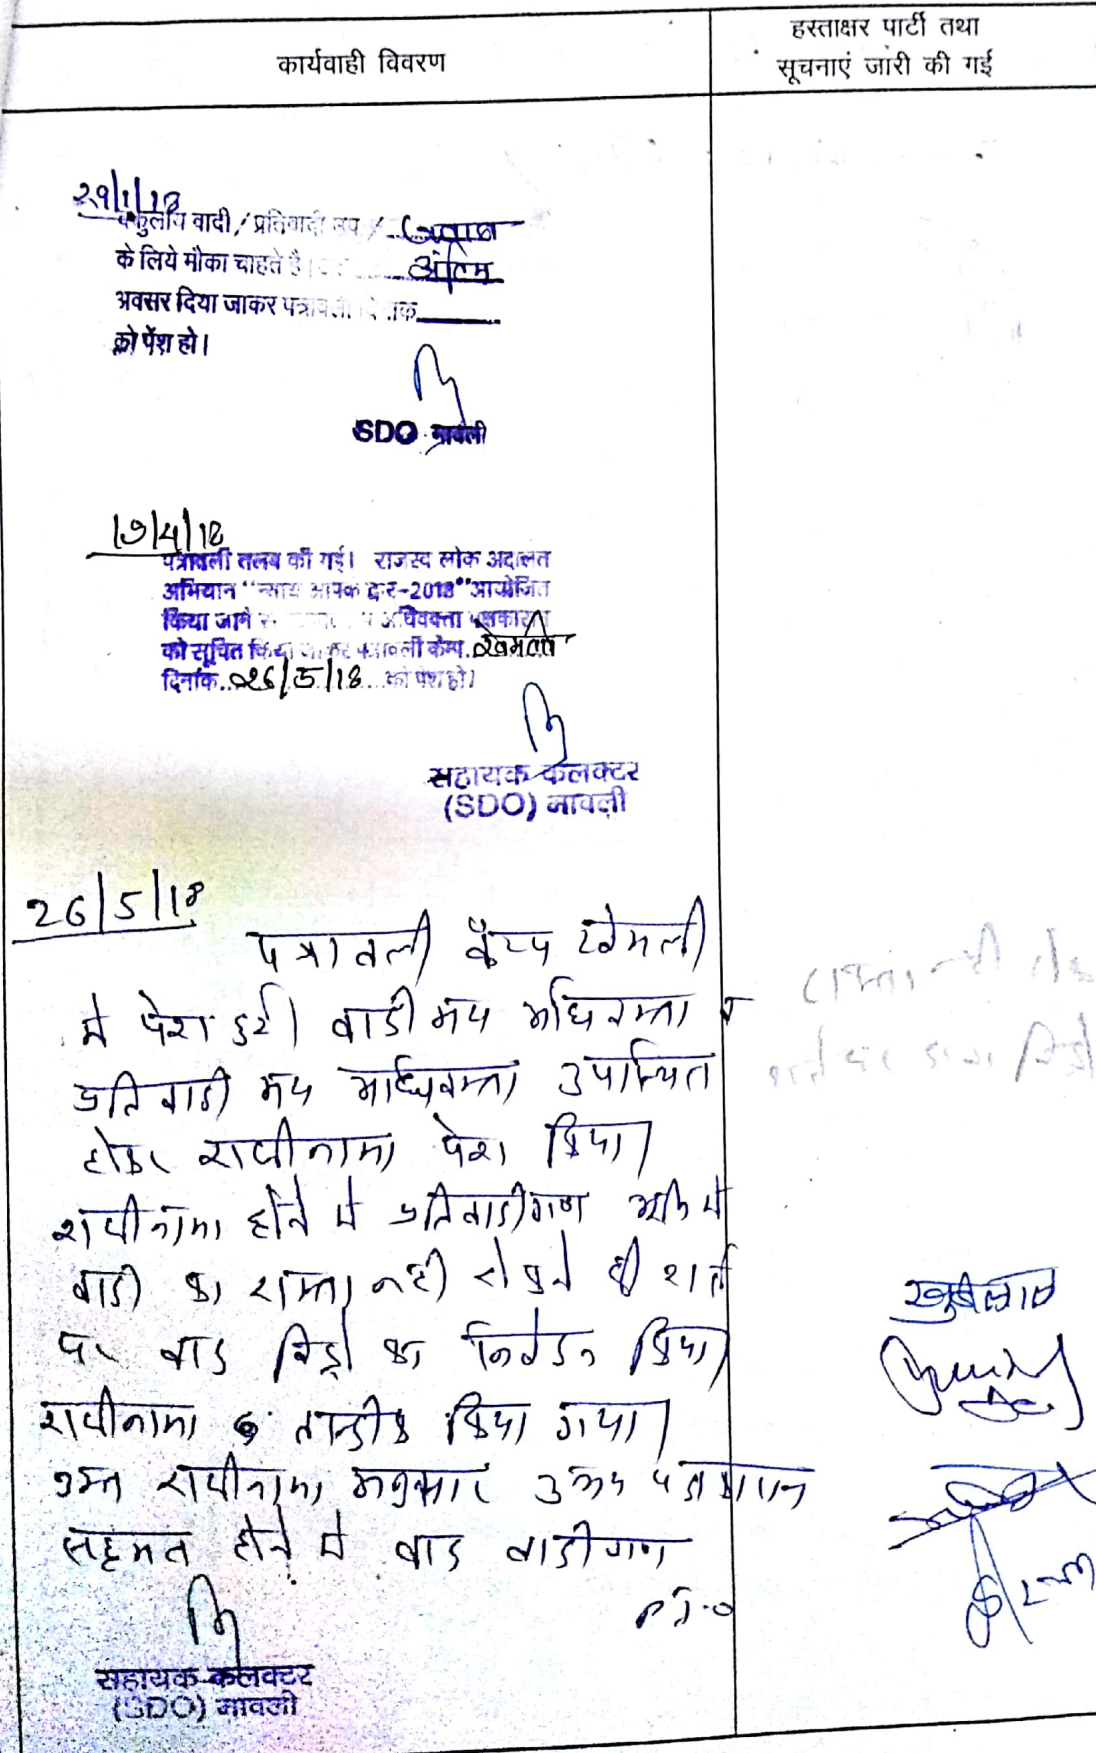 कार्यवाही विवरण
हस्ताक्षर पार्टी तथा
सूचनाएं जारी की गई
29/1/18
वकुलाय वादी / प्रतिवादी उप /
के लिये मौका चाहते है। अंतिम
अवसर दिया जाकर पत्रावली दिनांक
को पेंश हो।
SDO मावली
17/4/18
पत्रावली तलब की गई। राजस्व लोक अदालत
अभियान "न्याय आपके द्वार-2018" आयोजित
किया जाने अधिवक्ता पक्षकारान
को सूचित किया जाकर पत्रावली केम्प खेमली
दिनांक 26/5/18 को पेश हो।
सहायक कलक्टर
(SDO) मावली
26/5/18
पत्रावली कैम्प खेमली
मे पेश हुई। वादी मय अधिवक्ता व
प्रतिवादी मय अधिवक्ता उपस्थित
होकर राजीनामा पेश किया।
राजीनामा होने से प्रतिवादीगण भूमि मे
वादी का रास्ता नही रोकने की शर्त
पर वाद विड्रो का निवेदन किया।
राजीनामा तस्दीक किया गया।
उक्त राजीनामा अनुसार उभय पक्षकारान
सहमत होने से वाद वादीगण
P.T.O
सहायक कलक्टर
(SDO) मावली